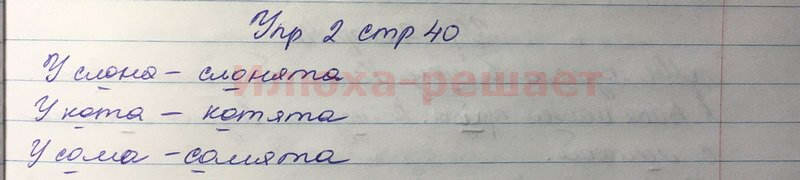 Упр 2 стр 40
У слона – слонята
Илюха-решает
У кота – котята
У сома – сомята